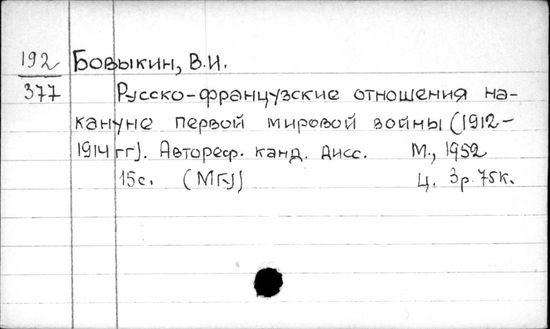 192 Бовыкин, В.И.
377 Русско-французские отношения на-
кануне первой мировой войны (1912-
1914 гг). Автореф. канд. дисс. М., 1952
15с. (МГУ) Ц. 3р.75к.